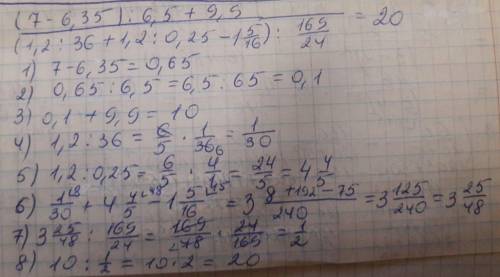 (7 - 6,35) : 6,5 + 9,9
(1,2 : 36 + 1,2 : 0,25 - 1 5/16) : 169/24 = 20
1) 7 - 6,35 = 0,65
2) 0,65 : 6,5 = 6,5 : 65 = 0,1
3) 0,1 + 9,9 = 10
4) 1,2 : 36 = 6/5 · 1/36 6 = 1/30
5) 1,2 : 0,25 = 6/5 · 4/1 = 24/5 = 4 4/5
6) 1/30 + 4 4/5 - 1 5/16 = 3 8+192-75/240 = 3 125/240 = 3 25/48
7) 3 25/48 : 169/24 = 169/48 · 24/169 = 1/2
8) 10 : 1/2 = 10 · 2 = 20